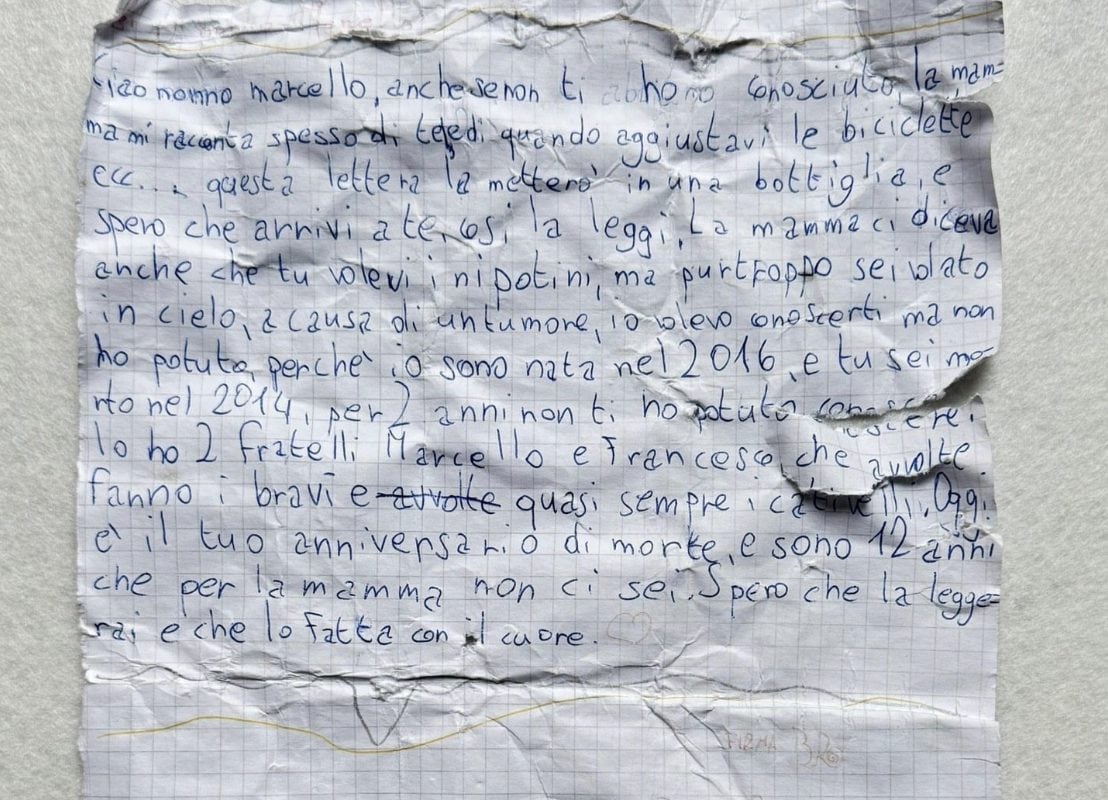 Ciao nonno marcello, anche se non ti ho conosciuto la mam=
ma mi racconta spesso di te e di quando aggiustavi le biciclette
ecc..., questa lettera la metterò in una bottiglia, e
spero che arrivi a te, così la leggi, La mamma ci diceva
anche che tu volevi i nipotini, ma purtroppo sei volato
in cielo, a causa di un tumore, io volevo conoscerti ma non
ho potuto, perchè io sono nata nel 2016, e tu sei mo-
rto nel 2014, per 2 anni non ti ho potuto conoscere.
Io ho 2 fratelli Marcello e Francesco, che avvolte
fanno i bravi e avvolte quasi sempre i cattivelli. Oggi
è il tuo anniversario di morte, e sono 12 anni
che per la mamma non ci sei. Spero che la legge=
rai e che lo fatta con il cuore.
FIRMA